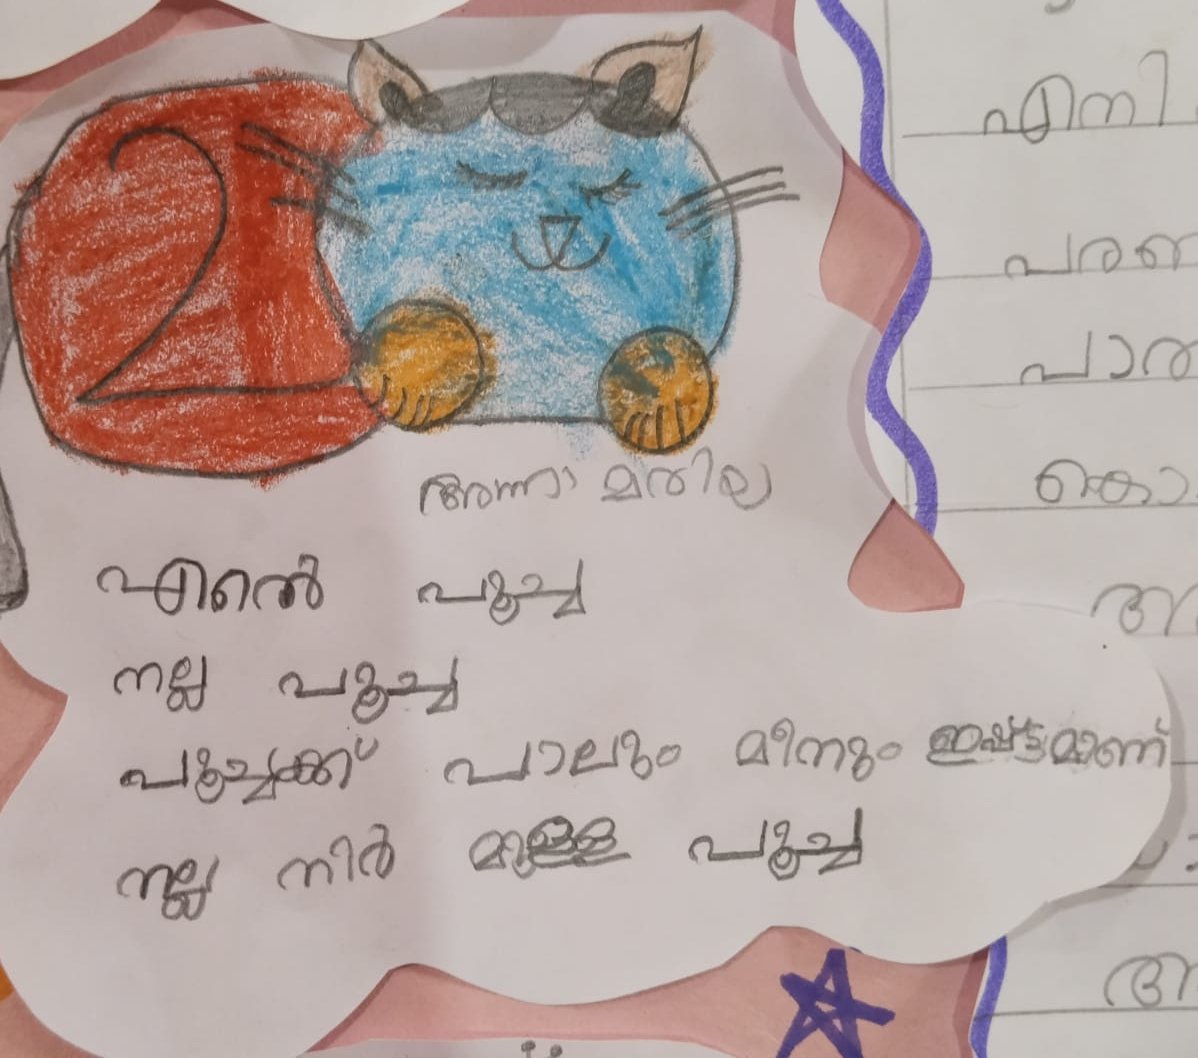 അന്നാ മരിയ
എന്റെ പൂച്ച
നല്ല പൂച്ച
പൂച്ചക്ക് പാലും മീനും ഇഷ്ട്ടമാണ്
നല്ല നിർ മുള്ള പൂച്ച
എനി